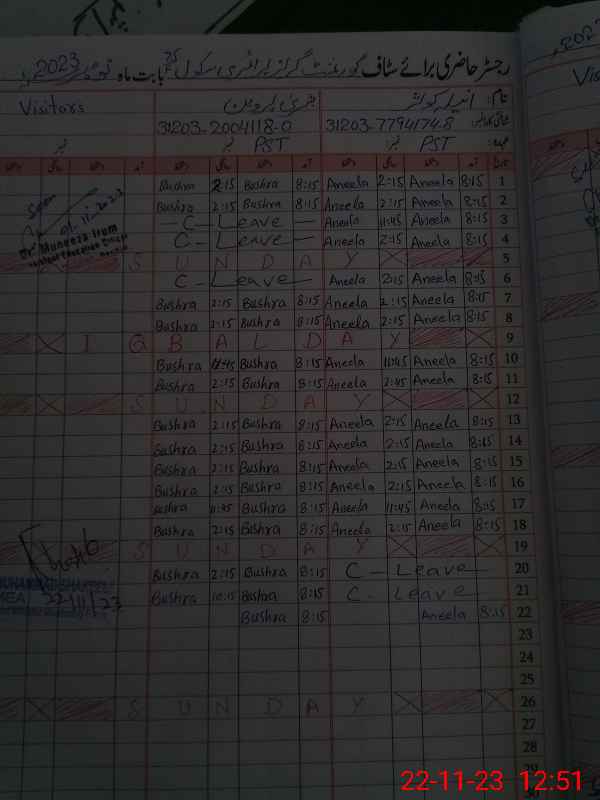 رجسٹر حاضری برائے سٹاف گورنمنٹ گرلز پرائمری سکول بابت ماہ نومبر 2023ء
نام:
Visitors
31203-7794174-8
31203-2004118-0
عہدہ: PST PST
Bushra 2:15 Bushra 8:15 Aneela 2:15 Aneela 8:15 1
Bushra 2:15 Bushra 8:15 Aneela 2:15 Aneela 8:15 2
C - Leave - Aneela 11:45 Aneela 8:15 3
C - Leave - Aneela 2:15 Aneela 8:15 4
01-11-2023
Dr. Muneeza Irum
SUNDAY 5
C - Leave Aneela 2:15 Aneela 8:15 6
Bushra 2:15 Bushra 8:15 Aneela 2:15 Aneela 8:15 7
Bushra 2:15 Bushra 8:15 Aneela 2:15 Aneela 8:15 8
IQBAL DAY 9
Bushra 11:45 Bushra 8:15 Aneela 11:45 Aneela 8:15 10
Bushra 2:15 Bushra 8:15 Aneela 2:45 Aneela 8:15 11
SUNDAY 12
Bushra 2:15 Bushra 8:15 Aneela 2:15 Aneela 8:15 13
Bushra 2:15 Bushra 8:15 Aneela 2:15 Aneela 8:15 14
Bushra 2:15 Bushra 8:15 Aneela 2:15 Aneela 8:15 15
Bushra 2:15 Bushra 8:15 Aneela 2:15 Aneela 8:15 16
Bushra 11:45 Bushra 8:15 Aneela 11:45 Aneela 8:15 17
Bushra 2:15 Bushra 8:15 Aneela 2:15 Aneela 8:15 18
SUNDAY 19
Bushra 2:15 Bushra 8:15 C - Leave 20
Bushra 10:15 Bushra 8:15 C - Leave 21
22/11/23
Bushra 8:15 Aneela 8:15 22
23
24
25
SUNDAY 26
27
28
29
22-11-23 12:51